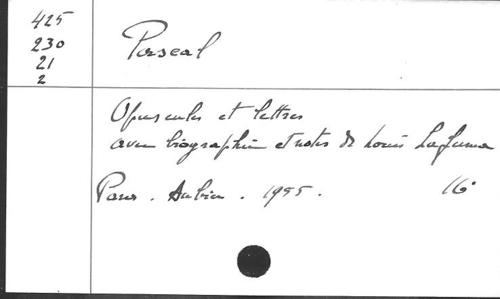 425
230
21
2
Pascal
Opuscules et lettres
avec biographie et notes de Louis Lafuma
Paris. Aubier. 1955. 16°